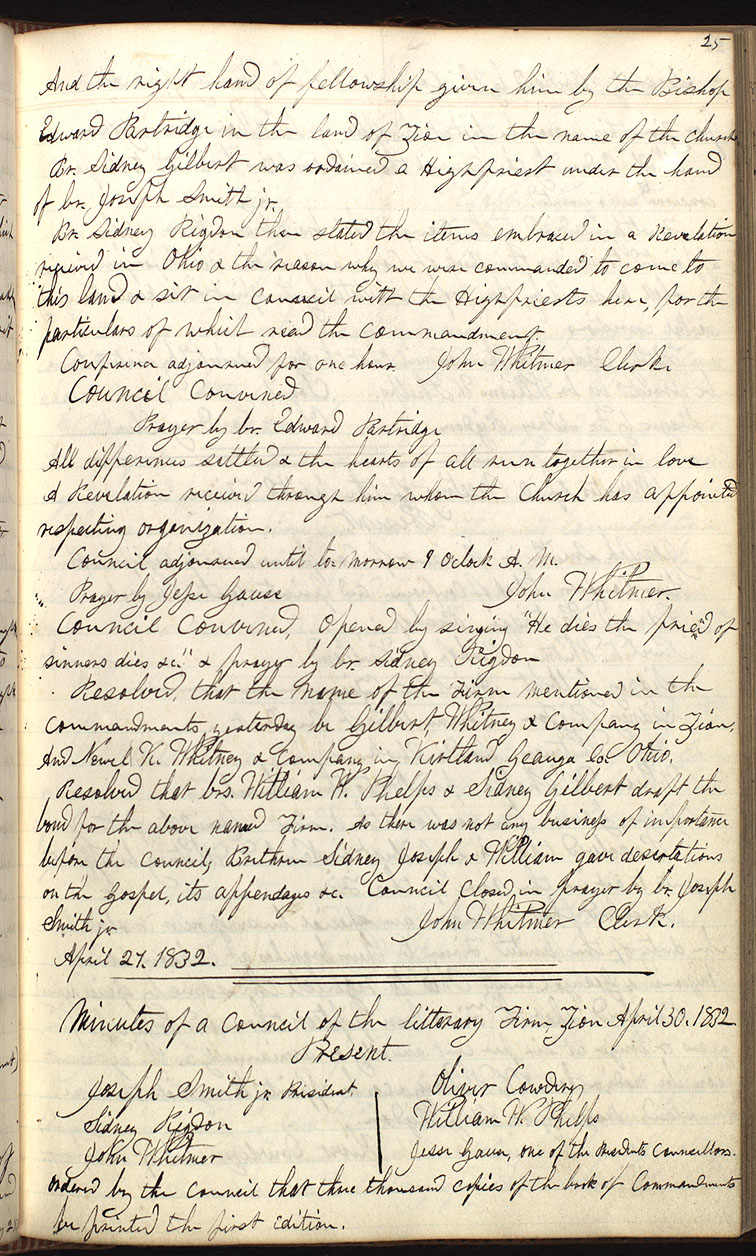 25
And the right hand of fellowship given him by the Bishop
Edward Partridge in the land of Zion in the name of the Church
Br. Sidney Gilbert was ordained a Highpriest under the hand
of br. Joseph Smith jr.
Br. Sidney Rigdon then stated the items embraced in a Revelation
received in Ohio & the reason why we were commanded to come to
this land & sit in council with the Highpriests here, for the
particulars of which read the commandment.
Conference adjourned for one hour. John Whitmer Clerk.
Council Convened
Prayer by br. Edward Partridge
All differences settled & the hearts of all run together in love
A Revelation received through him whom the Church has appointed
respecting organization.
Council adjourned until to-morrow 9 Oclock A. M.
Prayer by Jesse Gause John Whitmer.
Council Convened, Opened by singing "He dies the friend of
sinners dies &c." & prayer by br. Sidney Rigdon
Resolved, that the name of the Firm mentioned in the
Commandments yesterday be Gilbert, Whitney & Company in Zion,
And Newel K. Whitney & Company in Kirtland Geauga Co. Ohio.
Resolved that brs. William W. Phelps & Sidney Gilbert draft the
bond for the above named Firm. As there was not any business of importance
before the Council, Brethren Sidney Joseph & William gave desertations
on the Gospel, its appendages &c. Council Closed, in prayer by br. Joseph
Smith jr John Whitmer Clerk.
April 27. 1832.
Minutes of a Council of the litterary Firm Zion April 30. 1832
Present.
Joseph Smith jr. President. Oliver Cowdery
Sidney Rigdon William W. Phelps
John Whitmer Jesse Gause, one of the Presidents Councellors.
Ordered by the Council that three thousand copies of the book of Commandments
be printed the first edition.